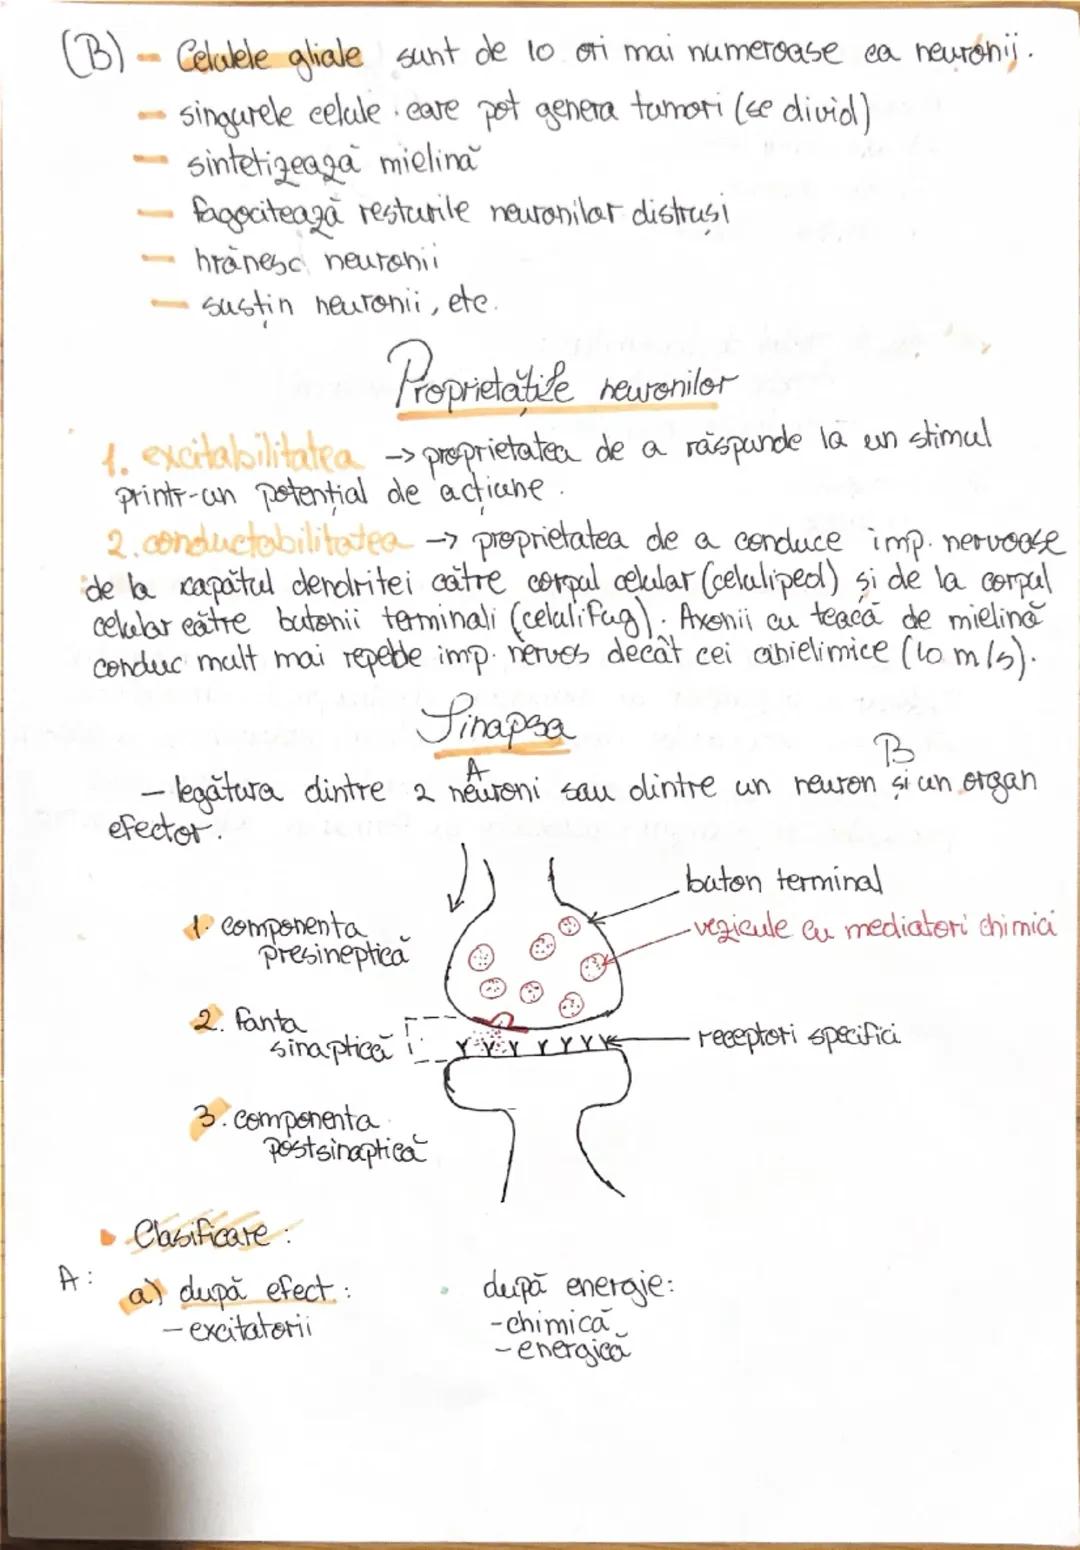 (B) - Celulele gliale sunt de 10 ori mai numeroase ca neuronii.
- singurele celule care pot genera tumori (se divid)
- sintetizează mielină
- fagocitează resturile neuronilor distruși
- hrănesc neuronii
- susțin neuronii, etc.
Proprietățile neuronilor
1. excitabilitatea -> proprietatea de a răspunde la un stimul
printr-un potențial de acțiune.
2. conductobilitatea -> proprietatea de a conduce imp. nervoase
de la capătul dendritei către corpul celular (celuliped) și de la corpul
celular către butonii terminali (celulifug). Axonii cu teacă de mielină
conduc mult mai repede imp. nervos decât cei abielimice (10 m/s).
Sinapsa
A B
- legătura dintre 2 neuroni sau dintre un neuron și un organ
efector.
buton terminal
1. componenta
presineptică
vezicule cu mediatori chimici
2. fanta
sinaptică
receptori specifici
3. componenta
postsinaptică
Clasificare:
A: a) după efect: după energie:
- excitatorii - chimică
- energică